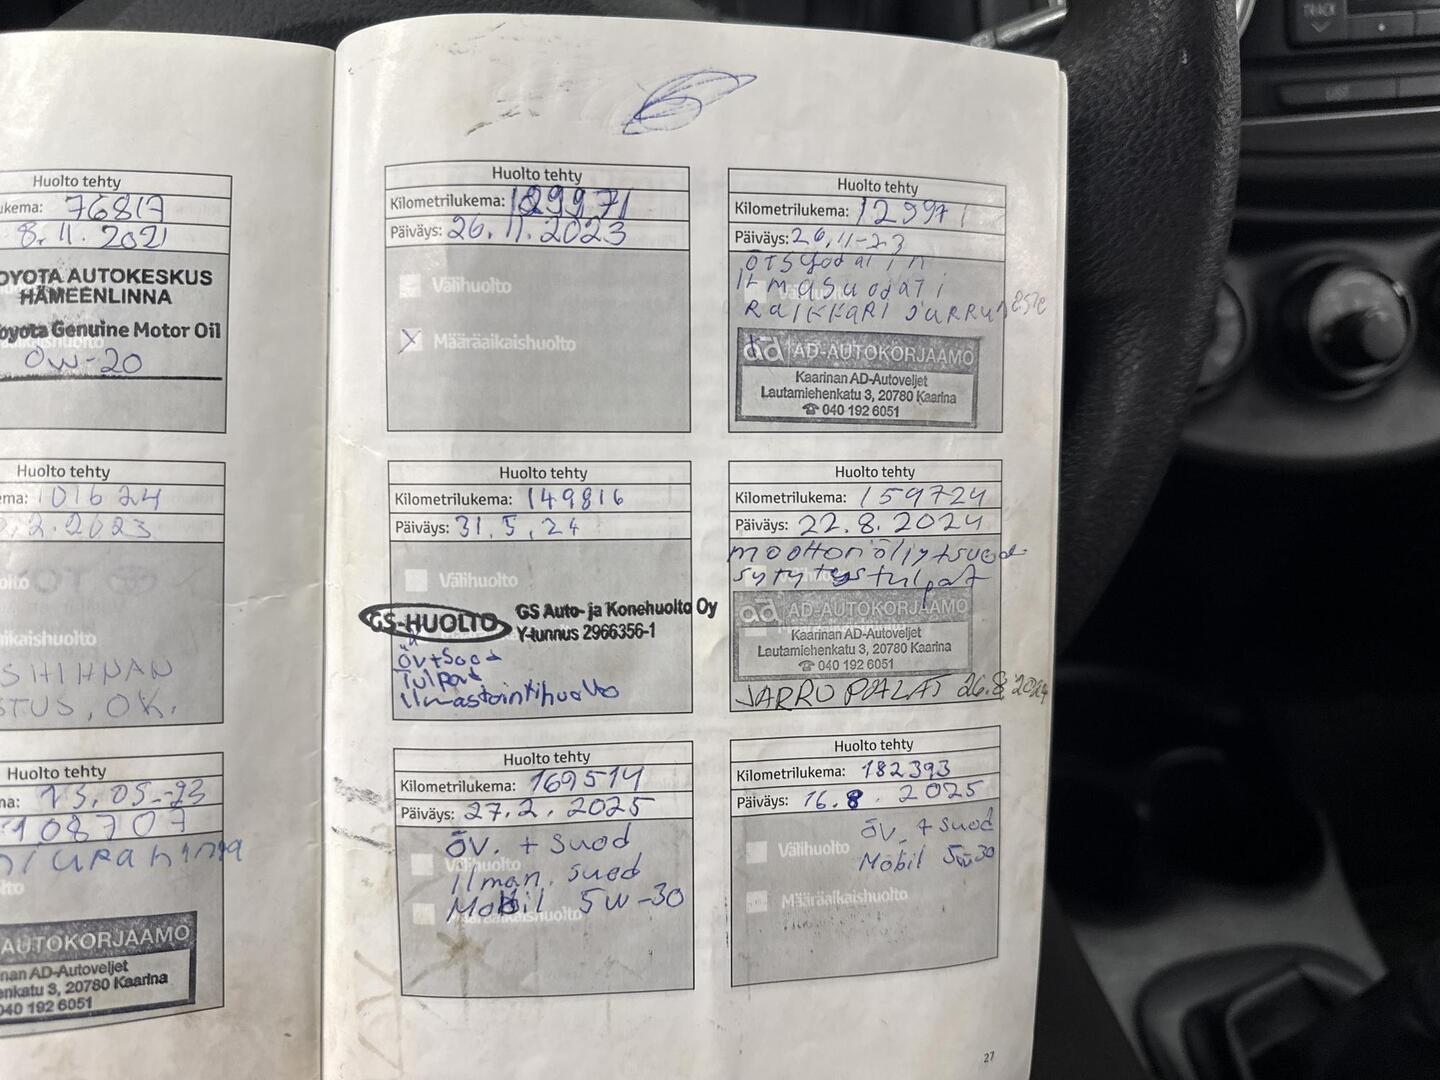 Huolto tehty
76817
8.11.2021
TOYOTA AUTOKESKUS
HÄMEENLINNA
Toyota Genuine Motor Oil
0W-20
Huolto tehty
101624
.2.2023
OK.
Huolto tehty
15.05.-23
108707
AUTOKORJAAMO
AD-Autoveljet
3, 20780 Kaarina
040 192 6051
Huolto tehty
Kilometrilukema: 129971
Päiväys: 26.11.2023
Välihuolto
X Määräaikaishuolto
Huolto tehty
Kilometrilukema: 129971
Päiväys: 26.11-23
ilmasuodati
jarru
ad AD-AUTOKORJAAMO
Kaarinan AD-Autoveljet
Lautamiehenkatu 3, 20780 Kaarina
☎ 040 192 6051
Huolto tehty
Kilometrilukema: 149816
Päiväys: 31.5.24
Välihuolto
GS-HUOLTO GS Auto- ja Konehuolto Oy
Y-tunnus 2966356-1
öv+suod
Tulpat
Ilmastointihuolto
Huolto tehty
Kilometrilukema: 159724
Päiväys: 22.8.2024
moottoriöljy+suod
sytytystulpat
ad AD-AUTOKORJAAMO
Kaarinan AD-Autoveljet
Lautamiehenkatu 3, 20780 Kaarina
☎ 040 192 6051
JARRUPALAT 26.8.2024
Huolto tehty
Kilometrilukema: 169514
Päiväys: 27.2.2025
öv. + suod
Välihuolto
Ilman. suod
Mobil 5w-30
Määräaikaishuolto
Huolto tehty
Kilometrilukema: 182393
Päiväys: 16.8.2025
öv. + suod
Välihuolto
Mobil 5w30
Määräaikaishuolto
27
TRACK